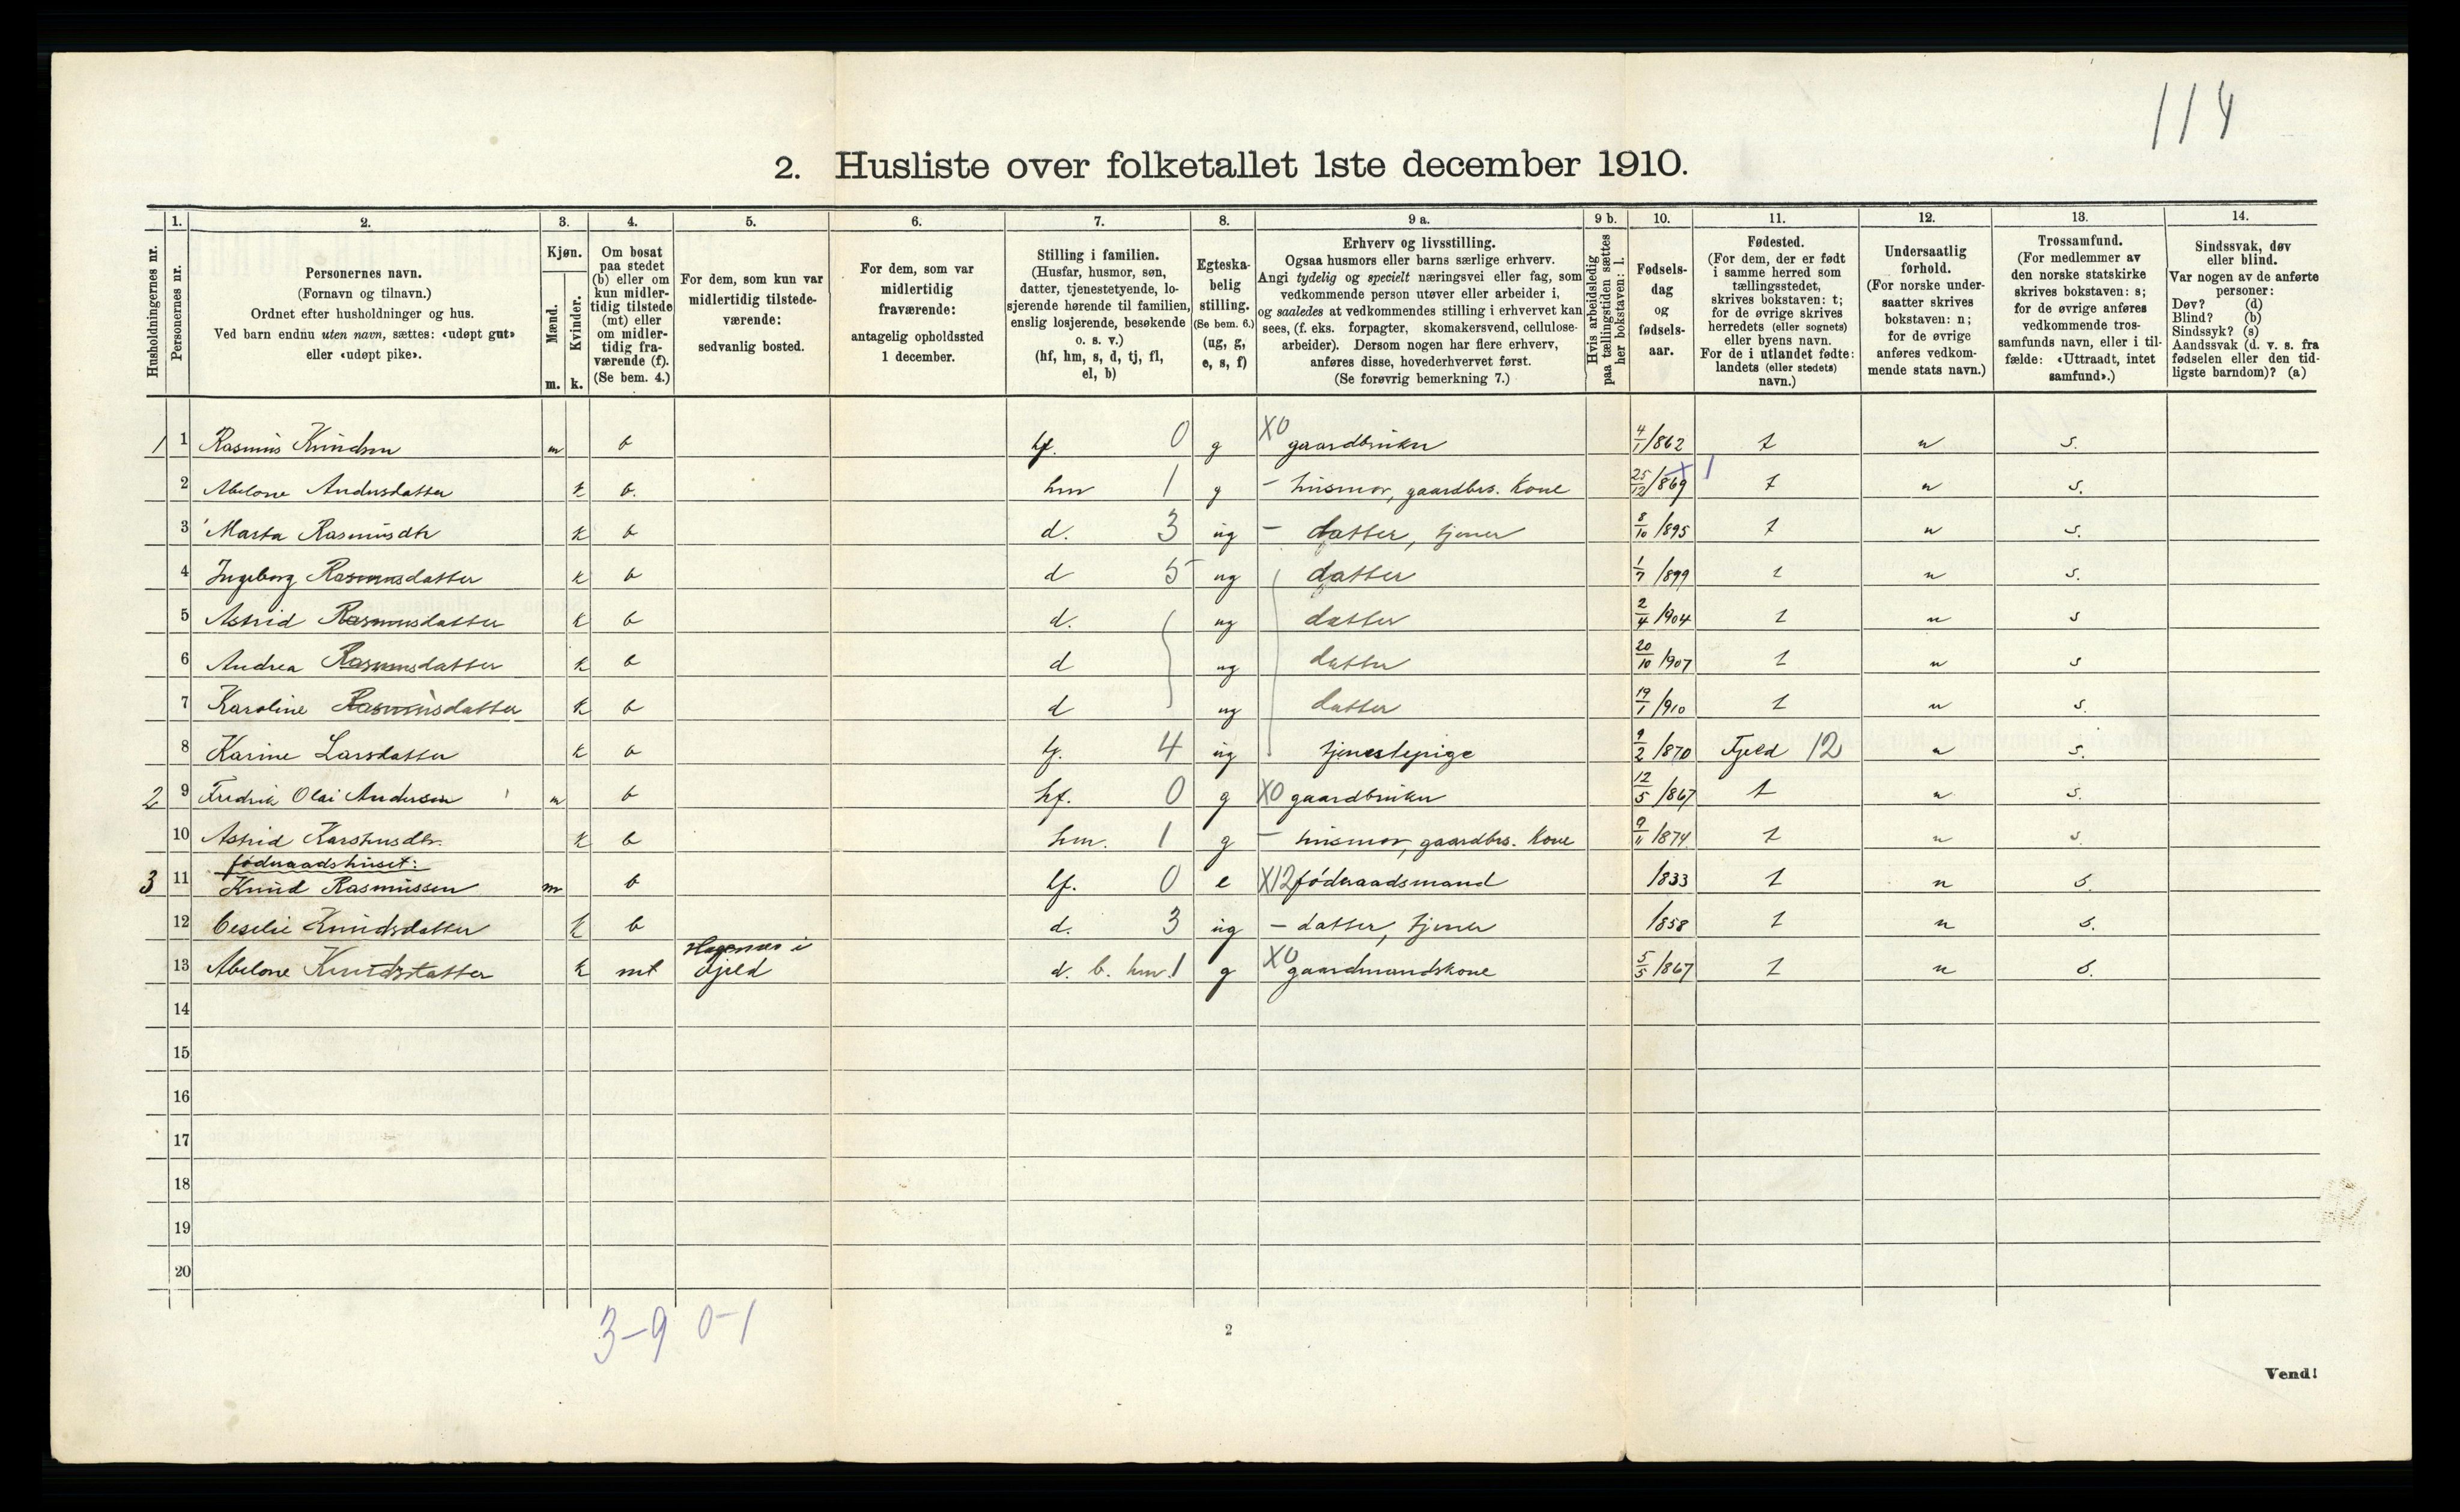 114
2. Husliste over folketallet 1ste december 1910.
Husholdningernes nr.
1. Personernes nr.
2. Personernes navn.
(Fornavn og tilnavn.)
Ordnet efter husholdninger og hus.
Ved barn endnu uten navn, sættes: «udøpt gut»
eller «udøpt pike».
3. Kjøn.
Mænd. m.
Kvinder. k.
4. Om bosat
paa stedet
(b) eller om
kun midler-
tidig tilstede
(mt) eller
om midler-
tidig fra-
værende (f).
(Se bem. 4.)
5. For dem, som kun var
midlertidig tilstede-
værende:
sedvanlig bosted.
6. For dem, som var
midlertidig
fraværende:
antagelig opholdssted
1 december.
7. Stilling i familien.
(Husfar, husmor, søn,
datter, tjenestetyende, lo-
sjerende hørende til familien,
enslig losjerende, besøkende
o. s. v.)
(hf, hm, s, d, tj, fl,
el, b)
8. Egteska-
belig
stilling.
(Se bem. 6.)
(ug, g,
e, s, f)
9 a. Erhverv og livsstilling.
Ogsaa husmors eller barns særlige erhverv.
Angi tydelig og specielt næringsvei eller fag, som
vedkommende person utøver eller arbeider i,
og saaledes at vedkommendes stilling i erhvervet kan
sees, (f. eks. forpagter, skomakersvend, cellulose-
arbeider). Dersom nogen har flere erhverv,
anføres disse, hovederhvervet først.
(Se forøvrig bemerkning 7.)
9 b. Hvis arbeidsledig
paa tællingstiden sættes
her bokstaven: l.
10. Fødsels-
dag
og
fødsels-
aar.
11. Fødested.
(For dem, der er født
i samme herred som
tællingsstedet,
skrives bokstaven: t;
for de øvrige skrives
herredets (eller sognets)
eller byens navn.
For de i utlandet fødte:
landets (eller stedets)
navn.)
12. Undersaatlig
forhold.
(For norske under-
saatter skrives
bokstaven: n;
for de øvrige
anføres vedkom-
mende stats navn.)
13. Trossamfund.
(For medlemmer av
den norske statskirke
skrives bokstaven: s;
for de øvrige anføres
vedkommende tros-
samfunds navn, eller i til-
fælde: «Uttraadt, intet
samfund».)
14. Sindssvak, døv
eller blind.
Var nogen av de anførte
personer:
Døv? (d)
Blind? (b)
Sindssyk? (s)
Aandssvak (d. v. s. fra
fødselen eller den tid-
ligste barndom)? (a)
1 1 Rasmus Knudsen m b hf. 0 g X0 gaardbruker 4/1/862 t n s.
2 Abelone Andersdatter k b. hm 1 g - husmor, gaardbrs. kone 25/12/869 1 t n s.
3 Marta Rasmusdtr k b d. 3 ug - datter, tjener 8/10/895 t n s.
4 Ingeborg Rasmusdatter k b d 5 ug datter 1/7/899 t n s.
5 Astrid Rasmusdatter k b d. ug datter 2/4/904 t n s
6 Andrea Rasmusdatter k b d ug datter 20/10/907 t n s
7 Karoline Rasmusdatter k b d ug datter 19/1/910 t n s.
8 Karine Larsdatter k b tj. 4 ug tjenestepige 9/2/870 Fjeld 12 n s.
2 9 Fredrik Olai Andersen m b hf. 0 g X0 gaardbruker 12/5/867 t n s.
10 Astrid Karstensdtr. k b hm. 1 g - husmor, gaardbrs. kone 9/11/874 t n s.
føderaadshuset:
3 11 Knud Rasmussen m b hf. 0 e X12 føderaadsmand /833 t n s.
12 Ceselie Knudsdatter k b d. 3 ug - datter, tjener /858 t n s.
13 Abelone Knudsdatter k mt i Fjeld d. b. hm. 1 g X0 gaardmandskone 5/5/867 t n s.
14
15
16
17
18
19
20
3-9 0-1
2
Vend!